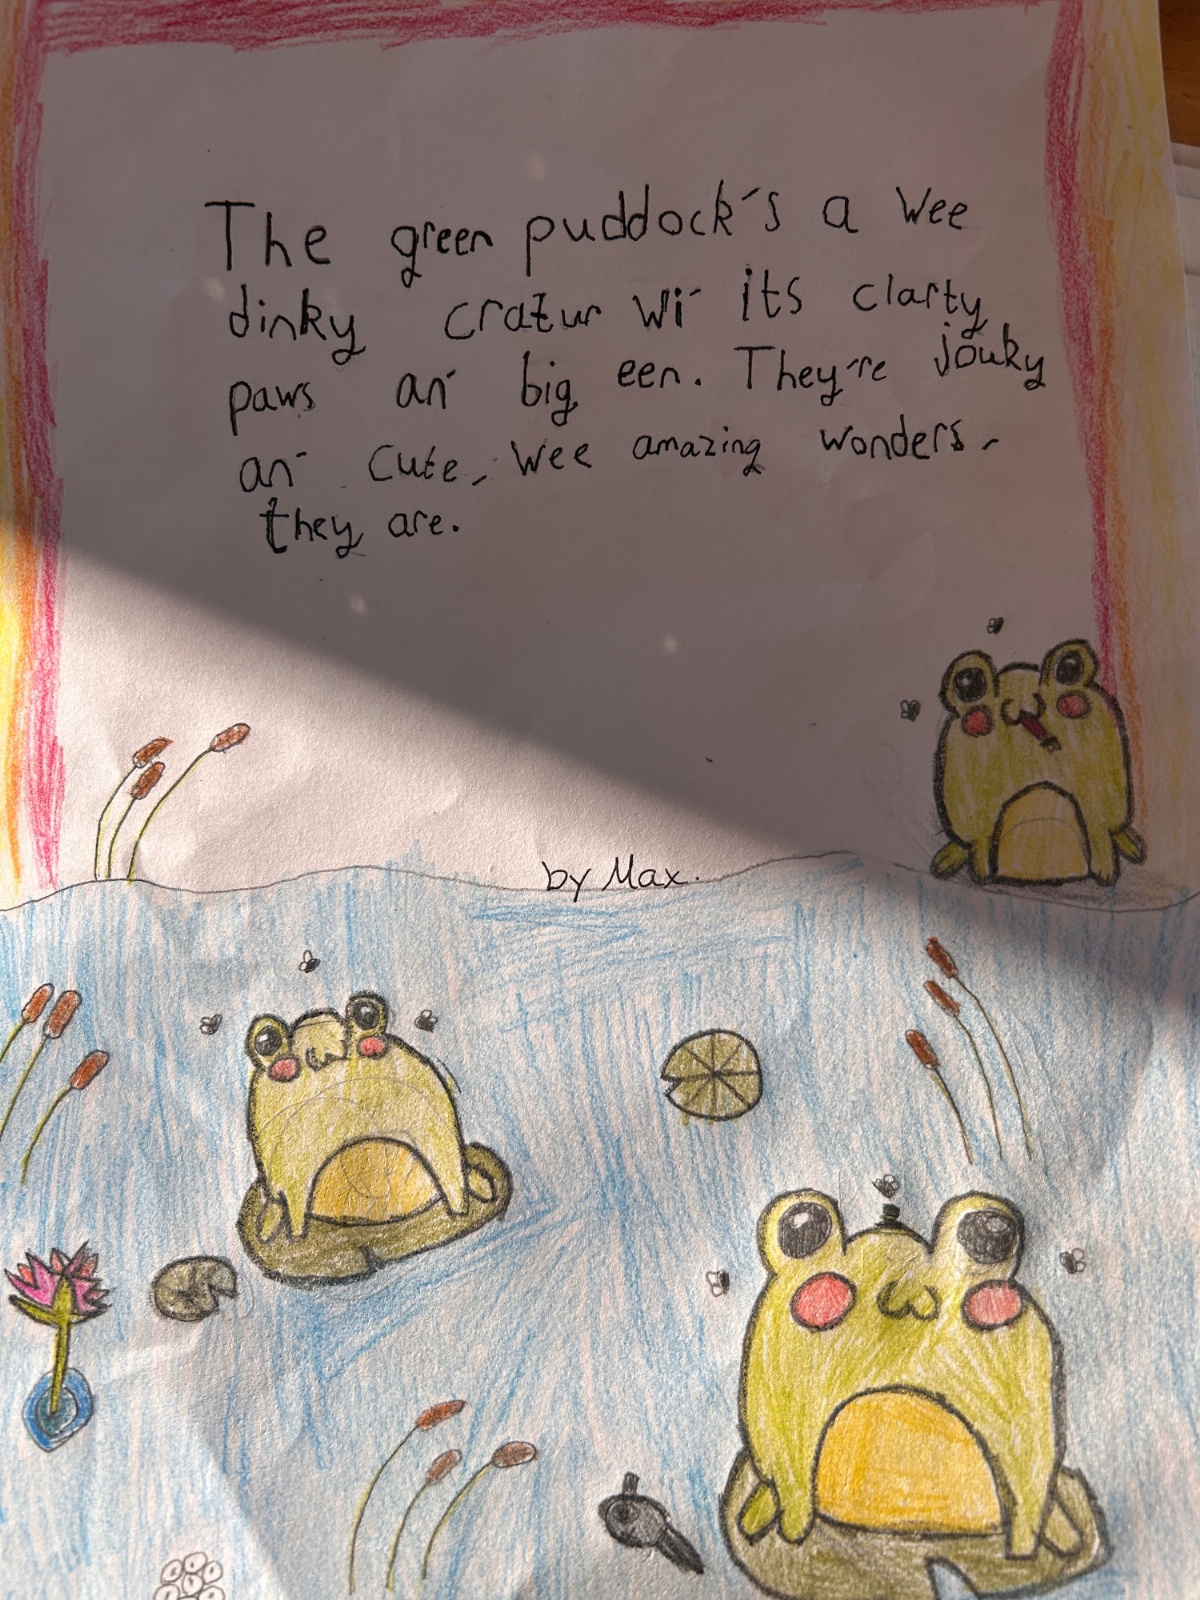 The green puddock's a wee
dinky cratur wi' its clarty
paws an' big een. They're jouky
an' cute, wee amazing wonders,
they are.
by Max.